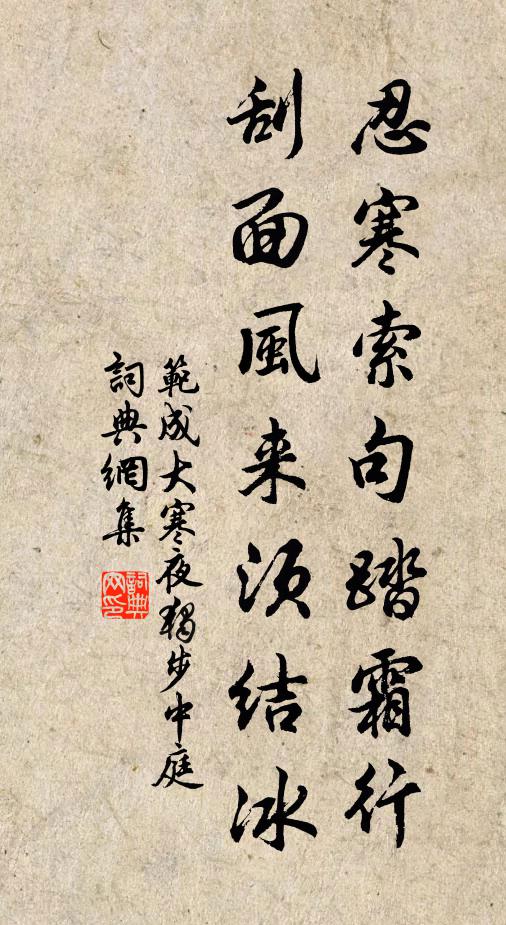 忍寒索句踏霜行
刮面風来須結冰
範成大寒夜獨步中庭
詞典網集
詞典網印